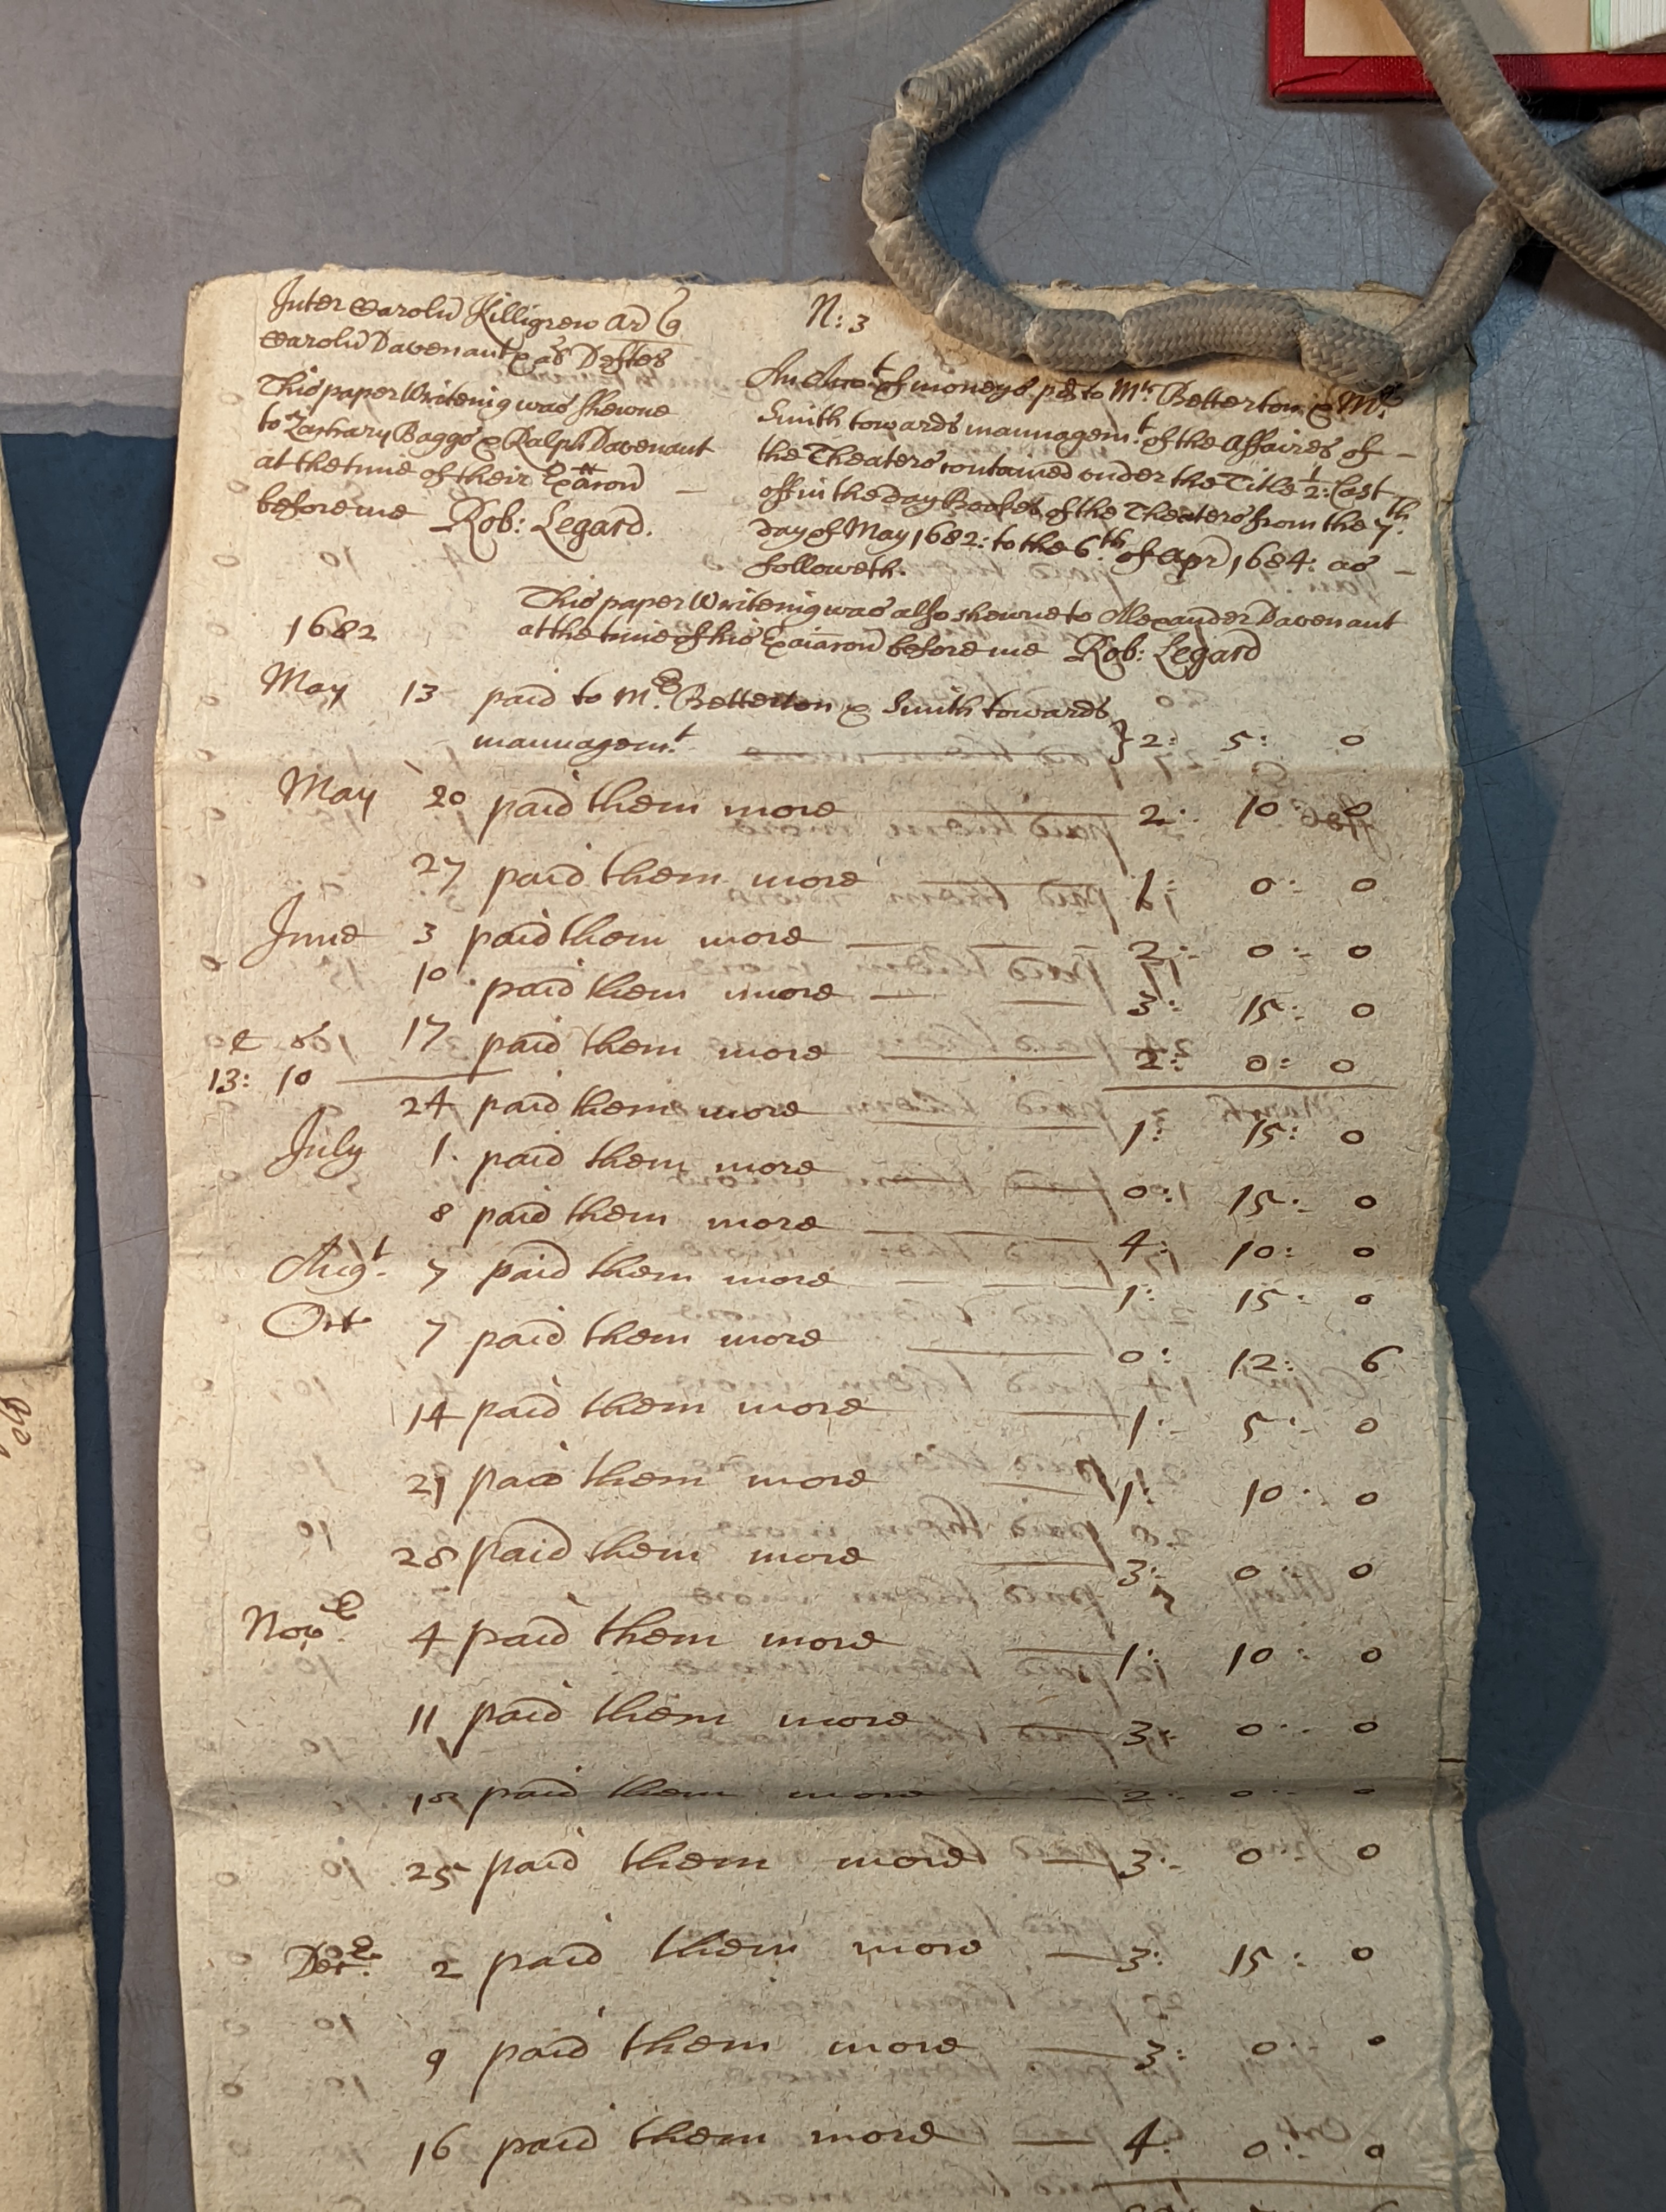 Inter Carolu Killigrew Ar Q
Carolu Davenant & als Deftes
This paper Writeinig was shewne
to Zachary Baggs & Ralph Davenant
at the time of their Exacon
before me Rob: Legard.
N: 3
An Acco.t of moneys pd to Mr Betterton & Mr.
Smith towards mannagem.t of the Affaires of –
the Theaters contained under the Title 1/2: Cast
off in the day Bookes of the Theaters from the 7.th
day of May 1682: to the 6.th of Apr 1684: as –
followeth.
This paper Writeinig was also shewne to Alexander Davenant
at the time of his Exaiacon before me Rob: Legard
1682
May 13 paid to M.rs Betterton & Smith towards
mannagem.t } 2: 5: 0
May 20 paid them more 2: 10: 0
27 paid them more 1: 0: 0
June 3 paid them more 2: 0: 0
10 paid them more 3: 15: 0
17 paid them more 2: 0: 0
13: 10
24 paid them more 1: 15: 0
July 1. paid them more 0: 15: 0
8 paid them more 4: 10: 0
Aug.t 7 paid them more 1: 15: 0
Oct 7 paid them more 0: 12: 6
14 paid them more 1: 5: 0
21 paid them more 1: 10: 0
28 paid them more 3: 0: 0
Nov 4 paid them more 1: 10: 0
11 paid them more 3: 0: 0
18 paid them more 2: 0: 0
25 paid them more 3: 0: 0
Dec.r 2 paid them more 3: 15: 0
9 paid them more 3: 0: 0
16 paid them more 4: 0: 0